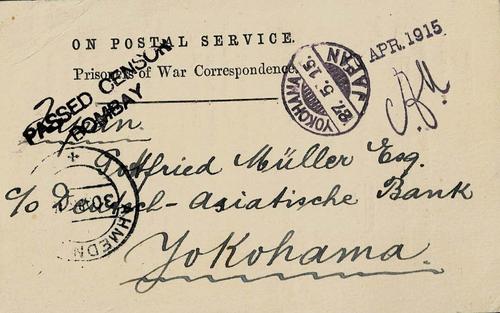 ON POSTAL SERVICE.
Prisoners of War Correspondence.
PASSED CENSOR
BOMBAY
YOKOHAMA
27. 5. 15.
JAPAN
APR. 1915
Gottfried Müller Esq.
c/o Deutsch-Asiatische Bank
Yokohama.
30
AHMEDN